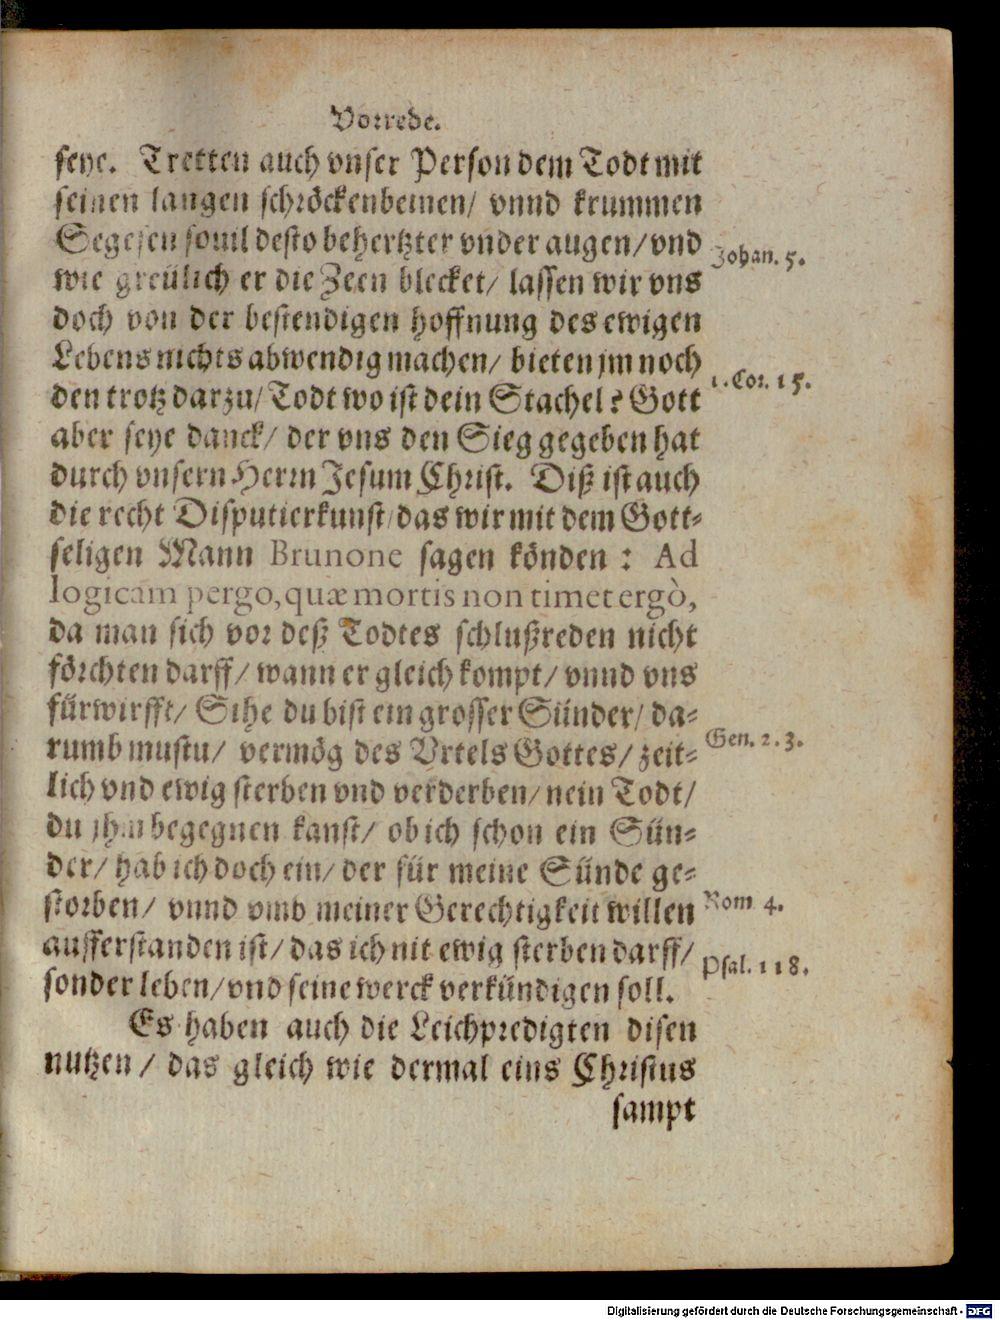 Vorrede.
seye. Tretten auch vnser Person dem Todt mit
seinen langen schröckenbeinen/ vnnd krummen
Segesen souil desto behertzter vnder augen/ vnd
Johan. 5.
wie greülich er die Zeen blecket/ lassen wir vns
doch von der bestendigen hoffnung des ewigen
Lebens nichts abwendig machen/ bieten jm noch
1. Cor. 15.
den trotz darzu/ Todt wo ist dein Stachel? Gott
aber seye danck/ der vns den Sieg gegeben hat
durch vnsern Herrn Jesum Christ. Diß ist auch
die recht Disputierkunst/ das wir mit dem Gott-
seligen Mann Brunone sagen könden : Ad
logicam pergo, quæ mortis non timet ergò,
da man sich vor deß Todtes schlußreden nicht
förchten darff/ wann er gleich kompt/ vnnd vns
fürwirfft/ Sihe du bist ein grosser Sünder/ da-
rumb mustu/ vermög des Vrtels Gottes/ zeit-
Gen. 2. 3.
lich vnd ewig sterben vnd verderben/ nein Todt/
du jhm begegnen kanst/ ob ich schon ein Sün-
der/ hab ich doch ein/ der für meine Sünde ge-
storben/ vnnd vmb meiner Gerechtigkeit willen
Rom 4.
aufferstanden ist/ das ich nit ewig sterben darff/
Psal. 118.
sonder leben/ vnd seine werck verkündigen soll.
Es haben auch die Leichpredigten disen
nutzen/ das gleich wie dermal eins Christus
sampt
Digitalisierung gefördert durch die Deutsche Forschungsgemeinschaft - DFG